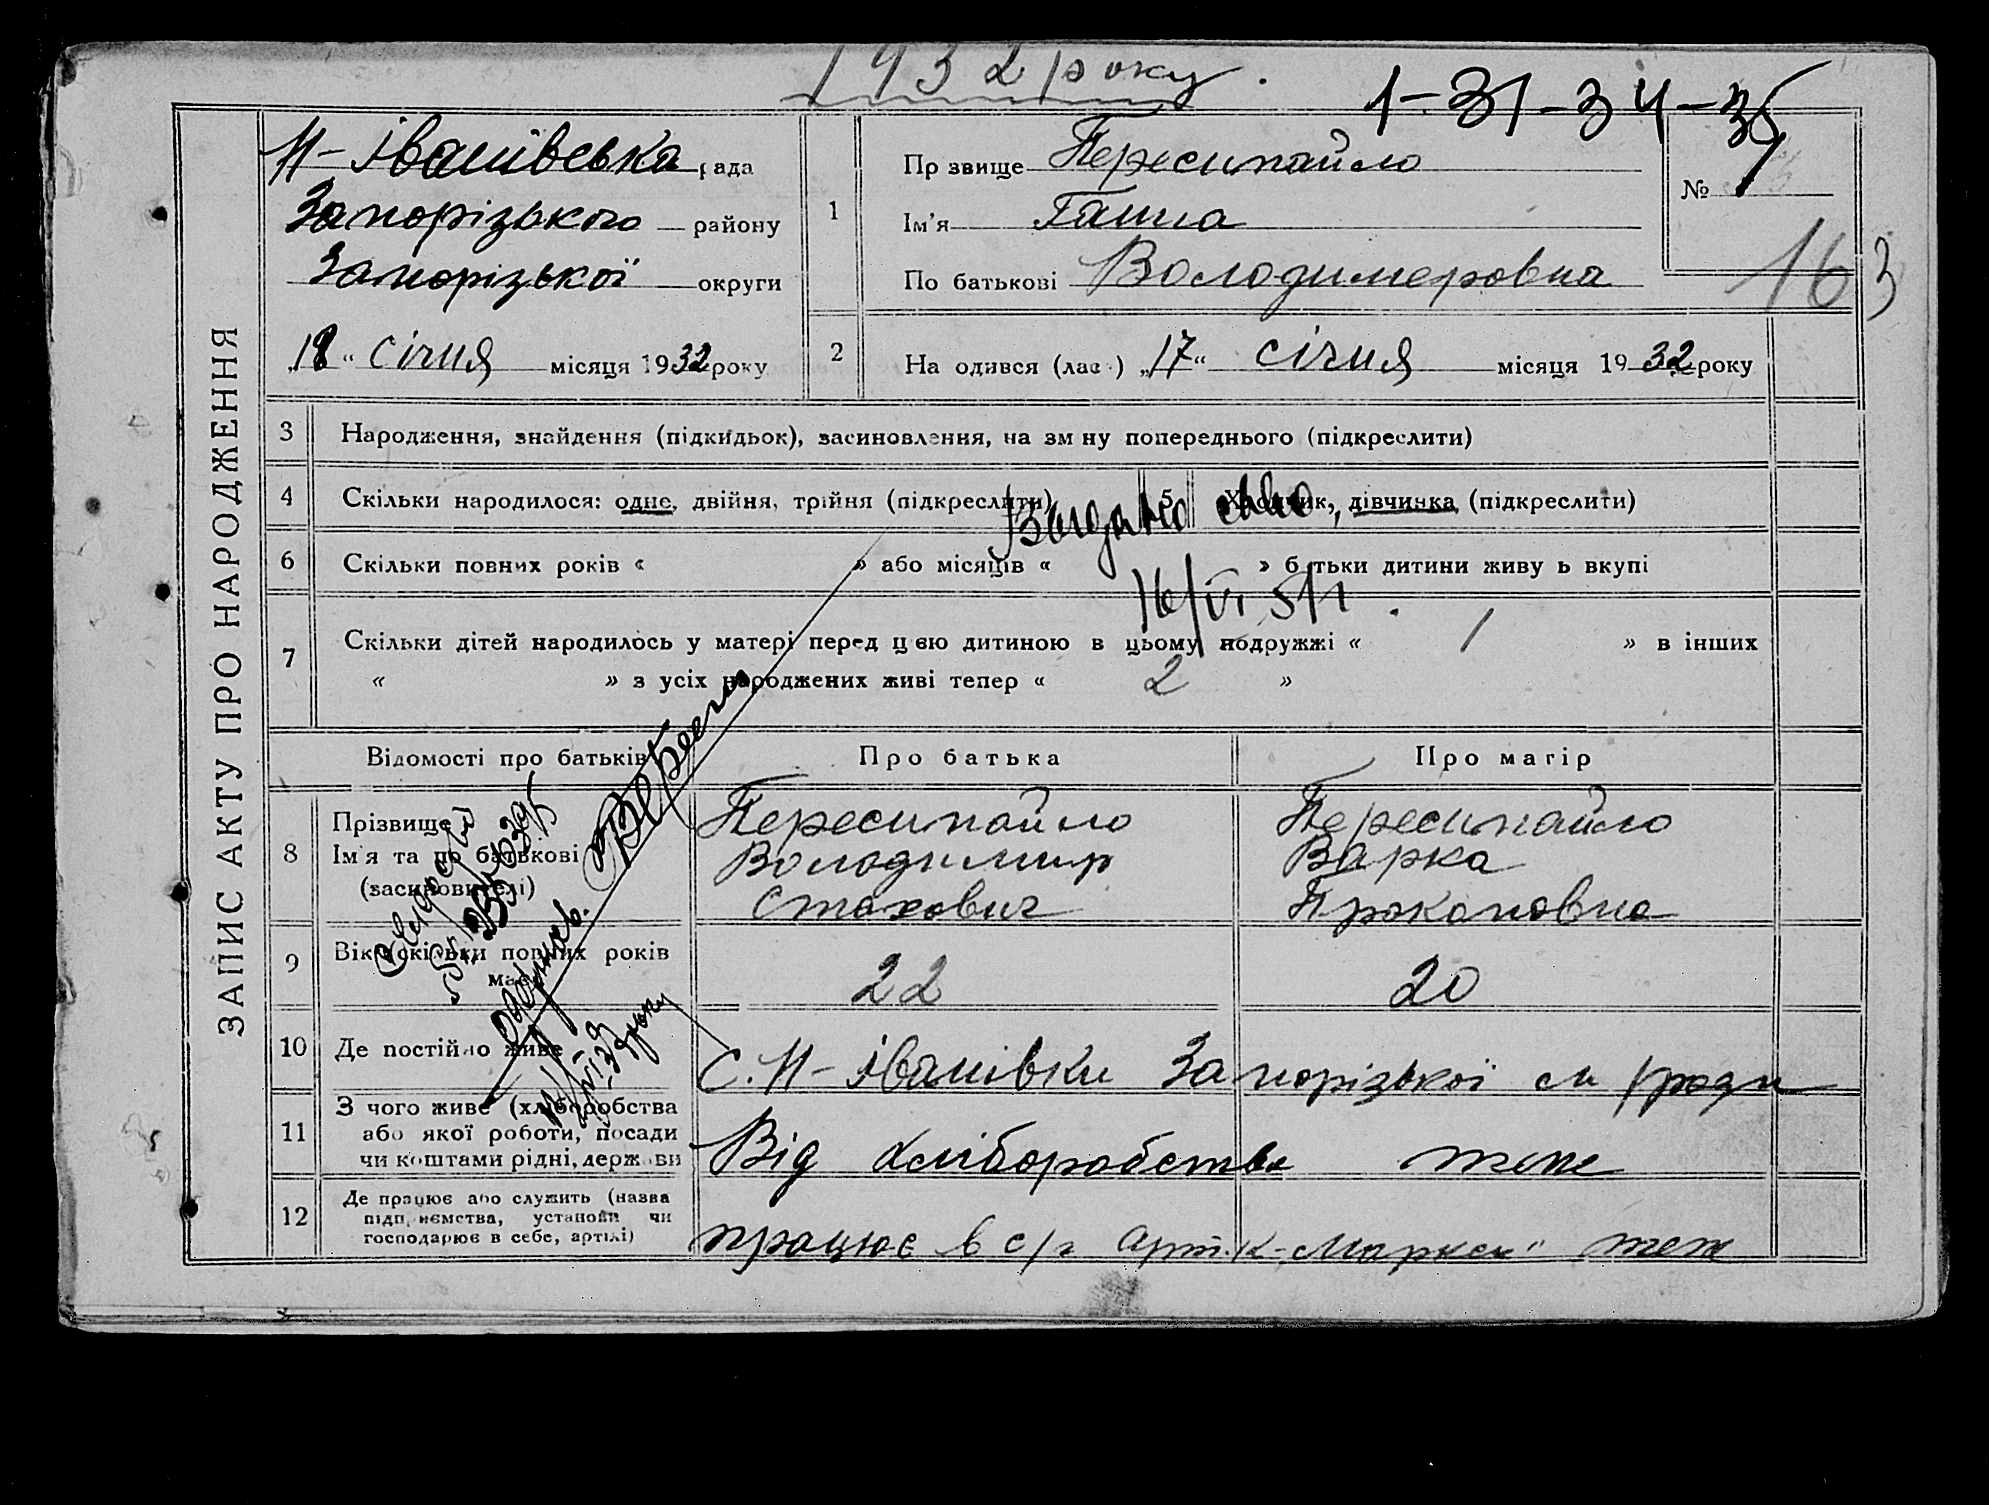 1932 року.
1-31-34-35
Н-Іванівська рада
Запорізького району
Запорізької округи
"18" січня місяця 1932 року
1
Прзвище Пересипайло
Ім'я Ганна
По батькові Володимеровна
№
163
2
На одився (лас) "17" січня місяця 1932 року
ЗАПИС АКТУ ПРО НАРОДЖЕННЯ
3 Народження, знайдення (підкидьок), засиновлення, на зм ну попереднього (підкреслити)
4 Скільки народилося: одне, двійня, трійня (підкреслити)
5 Хлопчик, дівчинка (підкреслити)
6 Скільки повних років « » або місяців « » б тьки дитини живу ь вкупі
16/VI
7 Скільки дітей народилось у матері перед цєю дитиною в цьому подружжі « 1 » в інших
« » з усіх народжених живі тепер « 2 »
Відомості про батьків
Про батька
Про матір
8 Прізвище
Ім'я та по батькові
(засиновителі)
Пересипайло
Володимир
Стахович
Пересипайло
Варка
Прокоповна
9 Вік скільки повних років має
22
20
10 Де постійно живе
С. Н-Іванівки Запорізької см/ради
11 З чого живе (хліборобства
або якої роботи, посади
чи коштами рідні, держави
Від хліборобства теж
12 Де працює або служить (назва
підприємства, установи чи
господарює в себе, артілі)
працює в с/г арт. К-Маркса" теж